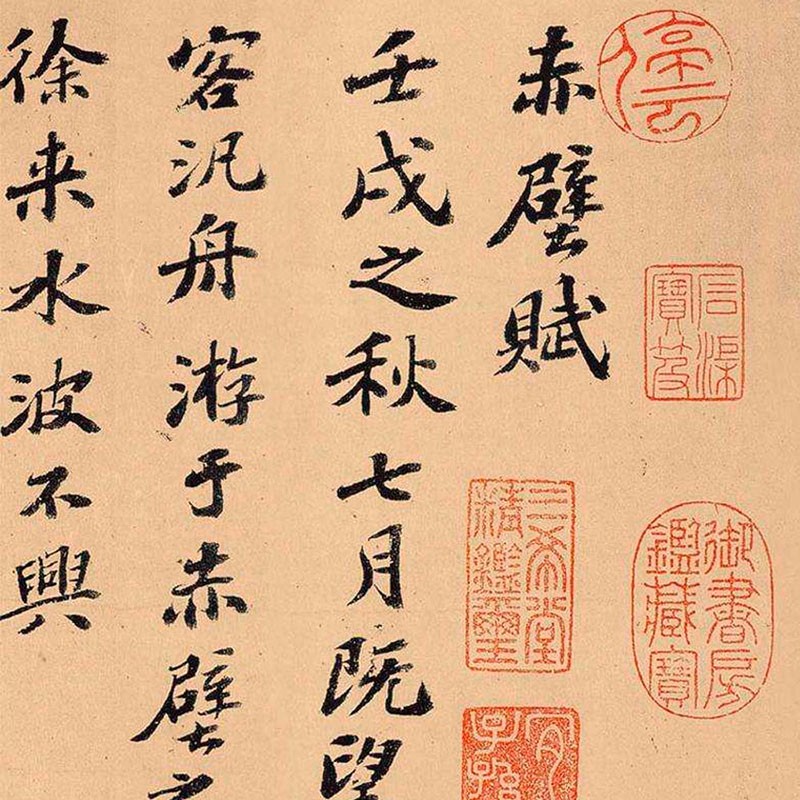 停云
石渠寶笈
御書房鑑藏寶
赤壁賦
三希堂精鑑璽
宜子孫
壬戌之秋七月既望
客汎舟游于赤壁之
徐来水波不興